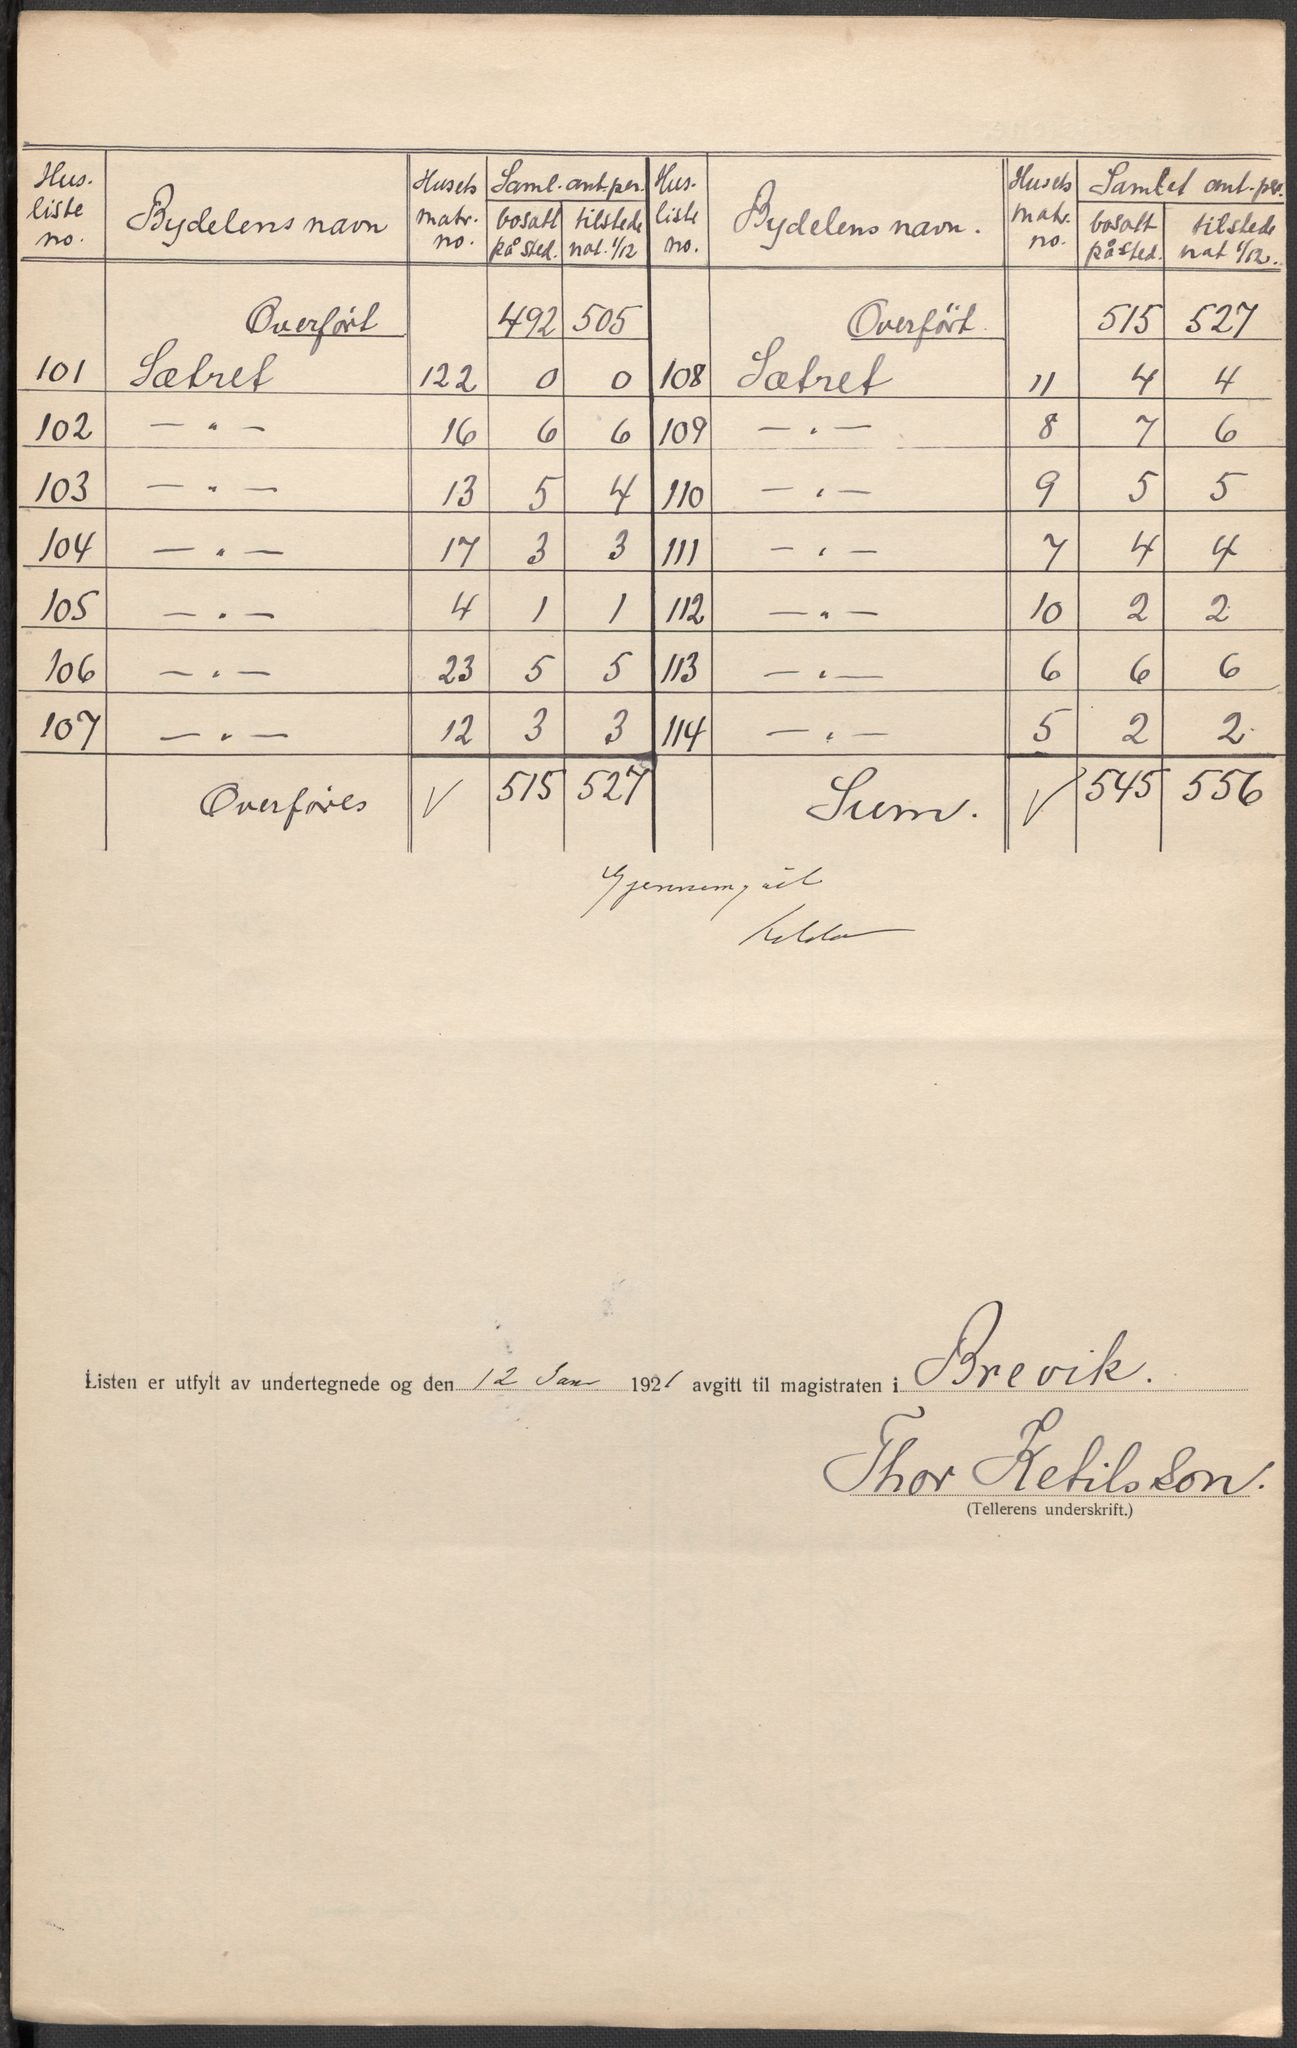 Hus-liste no. | Bydelens navn | Husets matr. no. | Saml. ant. per. bosatt på sted. | tilstede nat. 1/12 | Hus-liste no. | Bydelens navn. | Husets matr. no. | Samlet ant. per. bosatt på sted. | tilstede nat 1/12.
Overført | 492 | 505 | Overført. | 515 | 527
101 | Sætret | 122 | 0 | 0 | 108 | Sætret | 11 | 4 | 4
102 | — " — | 16 | 6 | 6 | 109 | — " — | 8 | 7 | 6
103 | — " — | 13 | 5 | 4 | 110 | — " — | 9 | 5 | 5
104 | — " — | 17 | 3 | 3 | 111 | — " — | 7 | 4 | 4
105 | — " — | 4 | 1 | 1 | 112 | — " — | 10 | 2 | 2
106 | — " — | 23 | 5 | 5 | 113 | — " — | 6 | 6 | 6
107 | — " — | 12 | 3 | 3 | 114 | — " — | 5 | 2 | 2
Overføres | √ | 515 | 527 | Sum. | √ | 545 | 556
Gjennemgåt
Listen er utfylt av undertegnede og den 12 Jan 1921 avgitt til magistraten i Brevik.
Thor Ketilsson.
(Tellerens underskrift.)